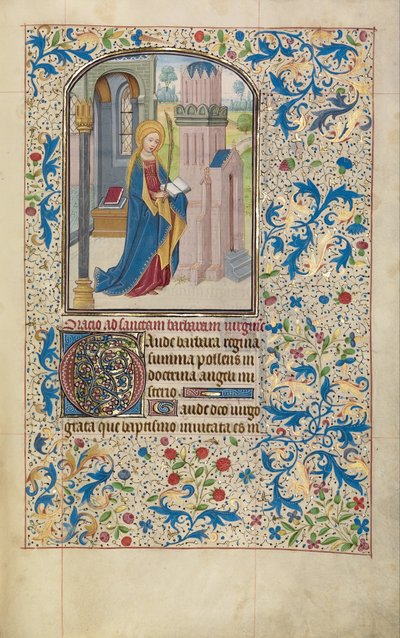 Oracio ad sanctam barbaram virginē
Gaude barbara regina
summa pollens in
doctrina angeli mi
sterio. Gaude deo virgo
grata que baptismo invitata es in